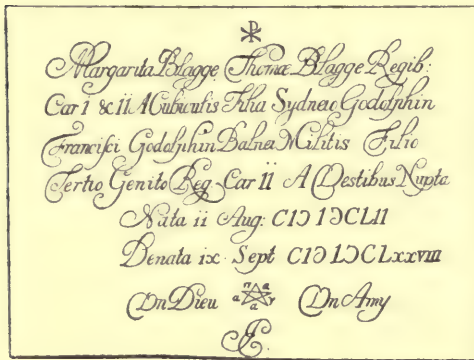 ☧
Margarita Blagge Thomæ Blagge Regib:
Car i & ii A Cubiculis Filia Sydneio Godolphin
Francisci Godolphin Balnei Militis Filio
Tertio Genito Reg. Car ii A Vestibus Nupta
Nata ii Aug: CIƆ IƆCLII
Denata ix Sept CIƆ IƆCLxxviii
Un Dieu Un Amy